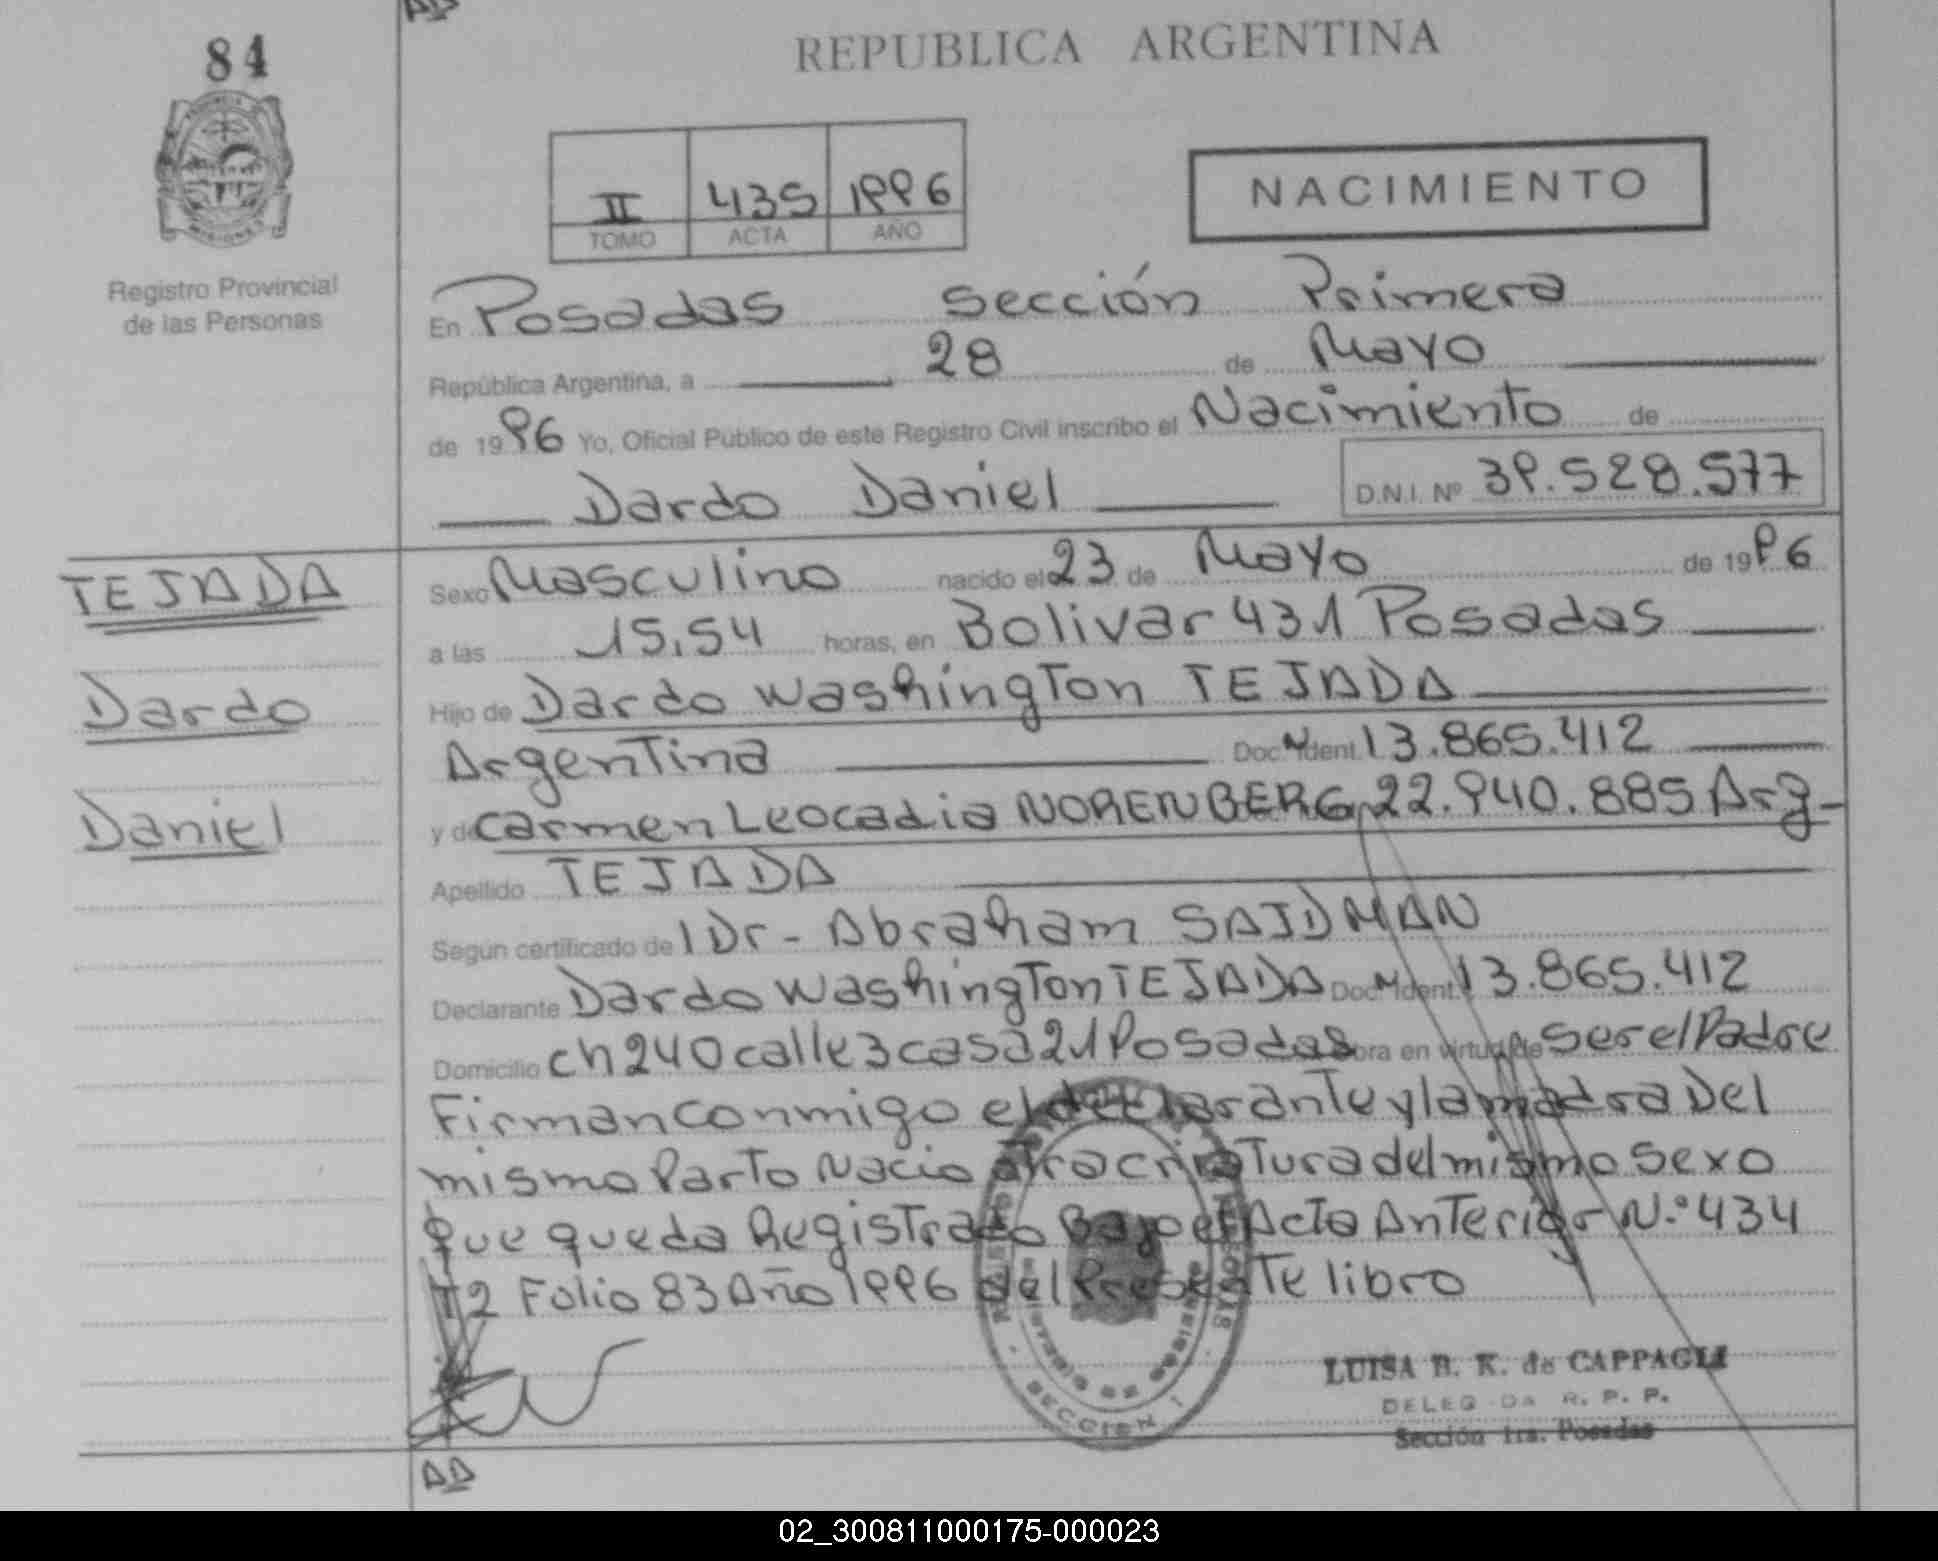 84
REPUBLICA ARGENTINA
II 435 1996
TOMO ACTA AÑO
NACIMIENTO
Registro Provincial
de las Personas
En Posadas Sección Primera
República Argentina, a 28 de Mayo
de 1996 Yo, Oficial Público de este Registro Civil inscribo el Nacimiento de
Dardo Daniel D.N.I. Nº 39.528.577
TEJADA
Dardo
Daniel
Sexo Masculino nacido el 23 de Mayo de 1996
a las 15,54 horas, en Bolivar 431 Posadas
Hijo de Dardo Washington TEJADA
Argentina Doc. Ident. 13.865.412
y de Carmen Leocadia NORENBERG 22.940.885 Arg-
Apellido TEJADA
Según certificado de l Dr- Abraham SAIDMAN
Declarante Dardo Washington TEJADA Doc. Ident. 13.865.412
Domicilio ch 240 calle 3 casa 21 Posadas obra en virtud de ser el Padre
Firman conmigo el declarante y la madra Del
mismo Parto Nacio otra criatura del mismo sexo
que queda Registrado Bajo el Acta Anterior N.º 434
T2 Folio 83 Año 1996 del Presente libro
LUISA B. K. de CAPPAGLI
DELEG DA R. P. P.
Sección 1ra. Posadas
SECCION 1
02_300811000175-000023